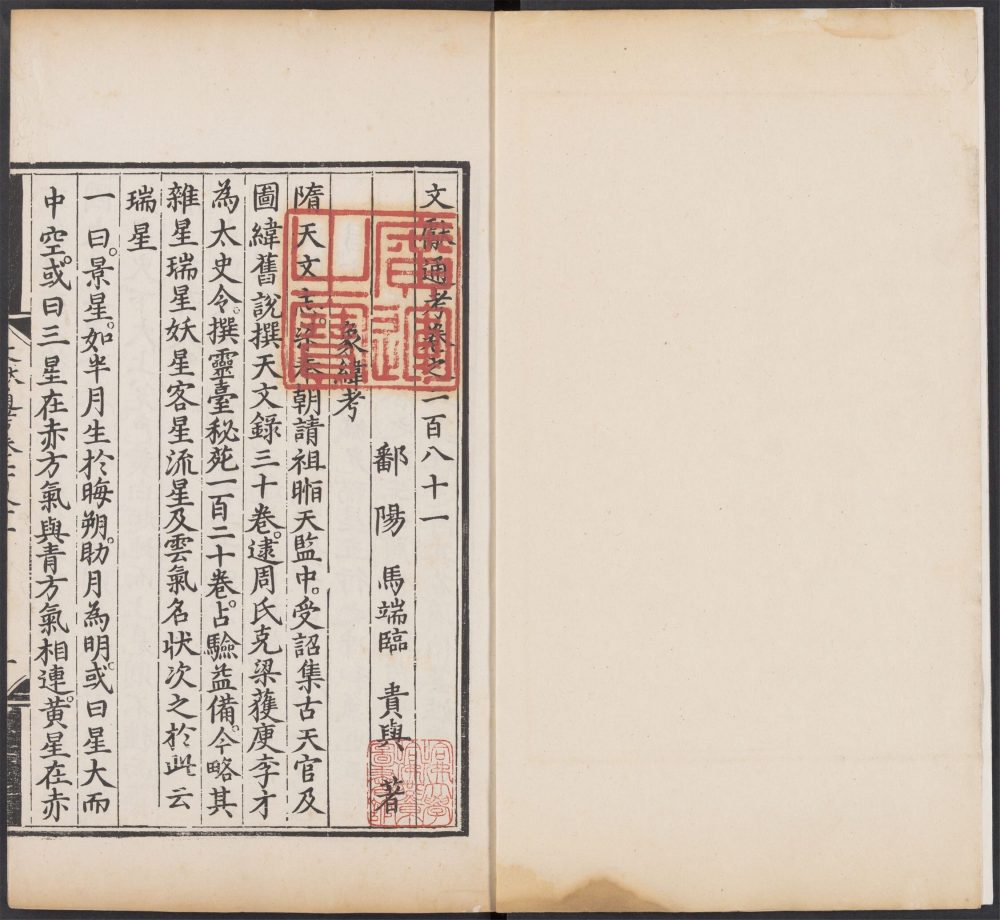 文獻通考卷之二百八十一
鄱陽 馬端臨 貴與 著
象緯考
隋天文志梁奉朝請祖暅天監中。受詔集古天官及
圖緯舊說撰天文錄三十卷。逮周氏克梁獲庾季才
為太史令。撰靈臺秘苑一百二十卷。占驗益備。今略其
雜星瑞星妖星客星流星及雲氣名狀次之於此云
瑞星
一曰。景星。如半月生於晦朔。助月為明。或曰星大而
中空。或曰三星在赤方氣與青方氣相連。黃星在赤
廣運之寶
哈佛大學漢和圖書館